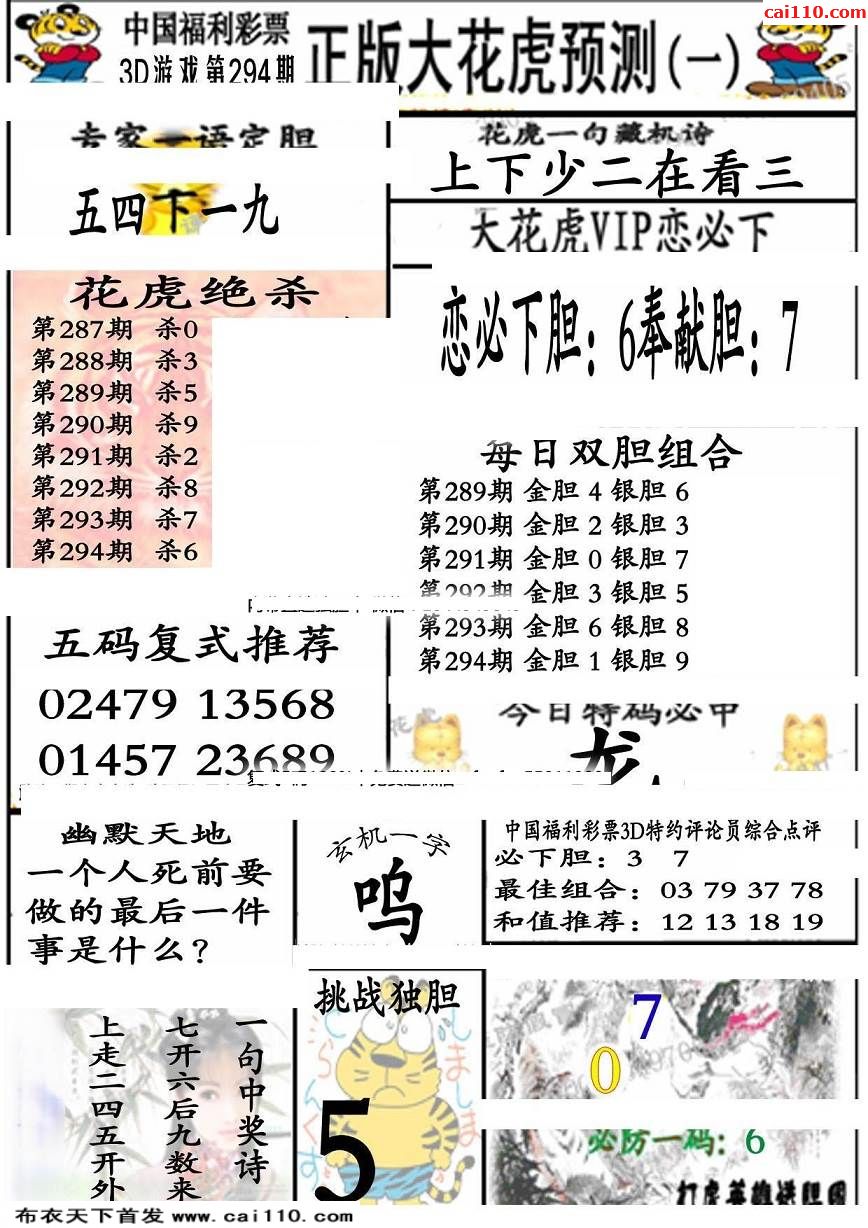 cai110.com
中国福利彩票
3D游戏第294期
正版大花虎预测(一)
专家一语定胆
五四下一九
花虎一句藏机诗
上下少二在看三
大花虎VIP恋必下
恋必下胆：6奉献胆：7
花虎绝杀
第287期 杀0
第288期 杀3
第289期 杀5
第290期 杀9
第291期 杀2
第292期 杀8
第293期 杀7
第294期 杀6
每日双胆组合
第289期 金胆 4 银胆 6
第290期 金胆 2 银胆 3
第291期 金胆 0 银胆 7
第292期 金胆 3 银胆 5
第293期 金胆 6 银胆 8
第294期 金胆 1 银胆 9
五码复式推荐
02479 13568
01457 23689
花虎
今日特码必中
龙
幽默天地
一个人死前要
做的最后一件
事是什么？
玄机一字
呜
中国福利彩票3D特约评论员综合点评
必下胆：3 7
最佳组合：03 79 37 78
和值推荐：12 13 18 19
一句中奖诗
七开六后九数来
上走二四五开外
挑战独胆
5
7
0
必防一码：6
打虎英雄送胆图
布衣天下首发 www.cai110.com